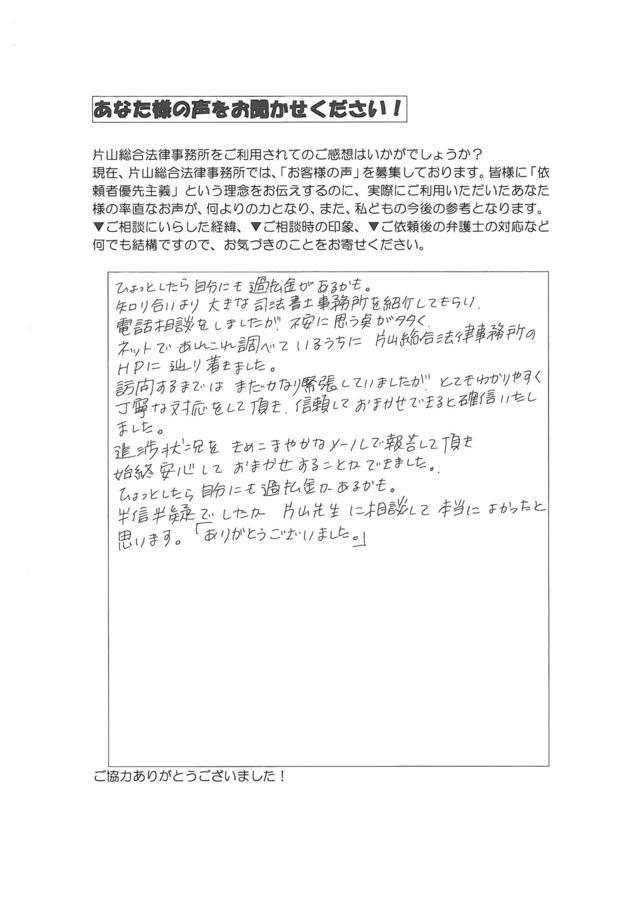 あなた様の声をお聞かせください！
片山総合法律事務所をご利用されてのご感想はいかがでしょうか？
現在、片山総合法律事務所では、「お客様の声」を募集しております。皆様に「依
頼者優先主義」という理念をお伝えするのに、実際にご利用いただいたあなた
様の率直なお声が、何よりの力となり、また、私どもの今後の参考となります。
▼ご相談にいらした経緯、▼ご相談時の印象、▼ご依頼後の弁護士の対応など
何でも結構ですので、お気づきのことをお寄せください。
ひょっとしたら自分にも過払金があるかも。
知り合いより 大きな司法書士事務所を紹介してもらい、
電話相談をしましたが、不安に思う点が多く、
ネットであれこれ調べているうちに 片山総合法律事務所の
HPに辿り着きました。
訪問するまでは まだかなり緊張していましたが、とてもわかりやすく
丁寧な対応をして頂き、信頼しておまかせできると確信いたし
ました。
進渉状況を きめこまやかなメールで報告して頂き
始終安心して おまかせすることができました。
ひょっとしたら自分にも過払金があるかも。
半信半疑でしたが 片山先生に相談して本当によかったと
思います。「ありがとうございました。」
ご協力ありがとうございました！